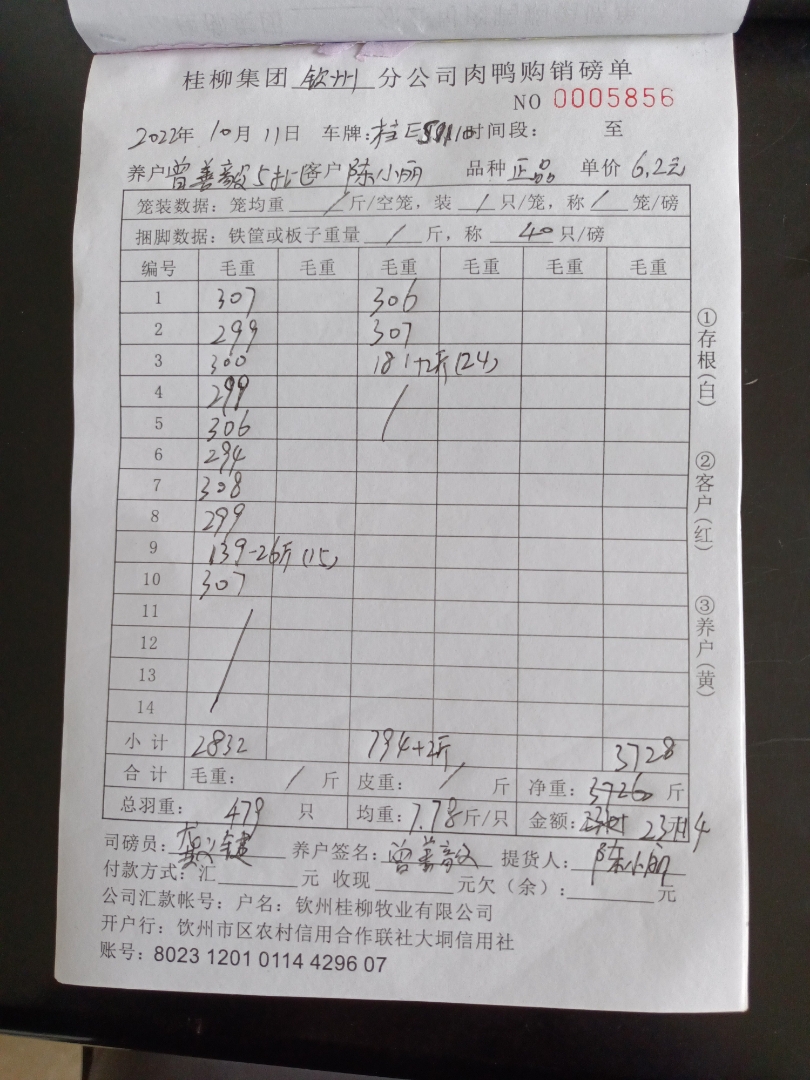 桂柳集团 钦州 分公司肉鸭购销磅单
NO 0005856
2022年 10月 11日 车牌: 时间段: 至
养户 曾善毅5批 客户 陈小丽 品种 正品 单价 6.2元
笼装数据: 笼均重 / 斤/空笼, 装 / 只/笼, 称 / 笼/磅
捆脚数据: 铁筐或板子重量 / 斤, 称 40 只/磅
编号 毛重 毛重 毛重 毛重 毛重 毛重
1 307 306
2 299 307
3 300 181+2斤(24)
4 299 /
5 306
6 294
7 308
8 299
9 139-26斤(15)
10 307
11 /
12
13
14
小计 2832 794+2斤 3728
合计 毛重: / 斤 皮重: / 斤 净重: 3726 斤
总羽重: 479 只 均重: 7.78斤/只 金额:
司磅员: 养户签名: 曾善毅 提货人: 陈小丽
付款方式: 汇 元 收现 元欠(余): 元
公司汇款帐号: 户名: 钦州桂柳牧业有限公司
开户行: 钦州市区农村信用合作联社大垌信用社
账号: 8023 1201 0114 4296 07
①存根(白) ②客户(红) ③养户(黄)